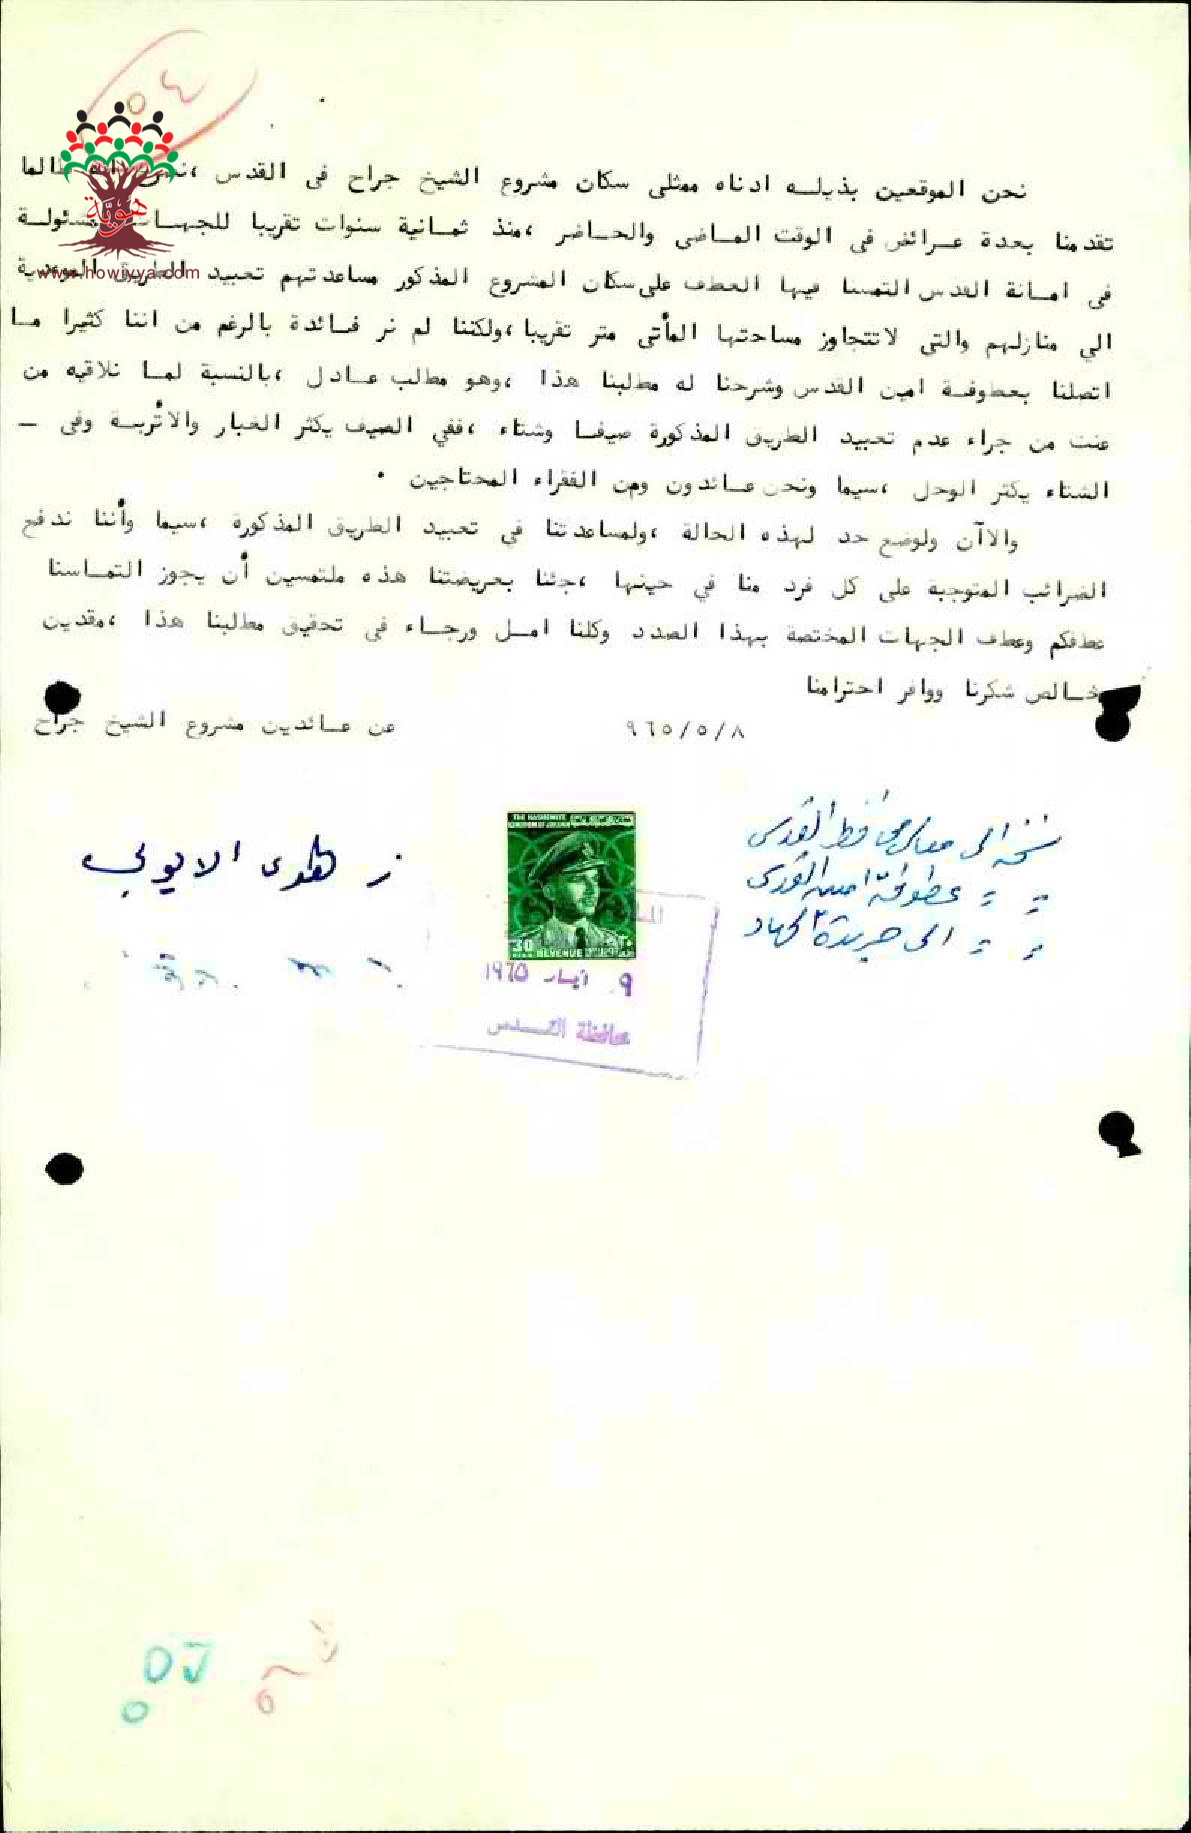 ٥٤
نحن الموقعين بذيلـه ادناه ممثلى سكان مشروع الشيخ جراح فى القدس ، طالما
تقدمنا بعدة عـرائض فى الوقت المـاضى والحـاضر ،منذ ثمـانية سنوات تقريبا للجهـات المسئولـة
فى امـانة القدس التمسنا فيها العطف على سكان المشروع المذكور مساعدتهم تعبيد الطريق الموءدية
الي منازلهم والتى لاتتجاوز مساحتها المأتى متر تقريبا ،ولكننا لم نر فـائدة بالرغم من اننا كثيرا مـا
اتصلنا بعطوفـة امين القدس وشرحنا له مطلبنا هذا ،وهو مطلب عـادل ،بالنسبة لمـا نلاقيه من
عنت من جراء عدم تعبيد الطريق المذكورة صيفـا وشتاء ،ففي الصيف يكثر الغبار والاتربـة وفى ــ
الشتاء يكثر الوحل ،سيما ونحن عـائدون ومن الفقراء المحتاجين ٠
والاآن ولوضع حد لهذه الحالة ،ولمساعدتنا في تعبيد الطريق المذكورة ،سيما وأننا ندفع
الضرائب المتوجبة على كل فرد منا في حينها ،جئنا بعريضتنا هذه ملتمسين أن يجوز التمـاسنا
عطفكم وعطف الجهات المختصة بهذا الصدد وكلنا امـل ورجـاء فى تحقيق مطلبنا هذا ،مقدين
خـالص شكرنا ووافر احترامنا
٩٦٥/٥/٨
عن عـائدين مشروع الشيخ جراح
نسخة الى معالي محافظ القدس
= = عطوفة امين القدس
= = الى جريدة الجهاد
الايوبي
THE HASHEMITE
KINGDOM OF JORDAN
30
REVENUE
٩ ايـار ١٩٦٥
محافظة القـدس
هويّة
www.howiyya.com